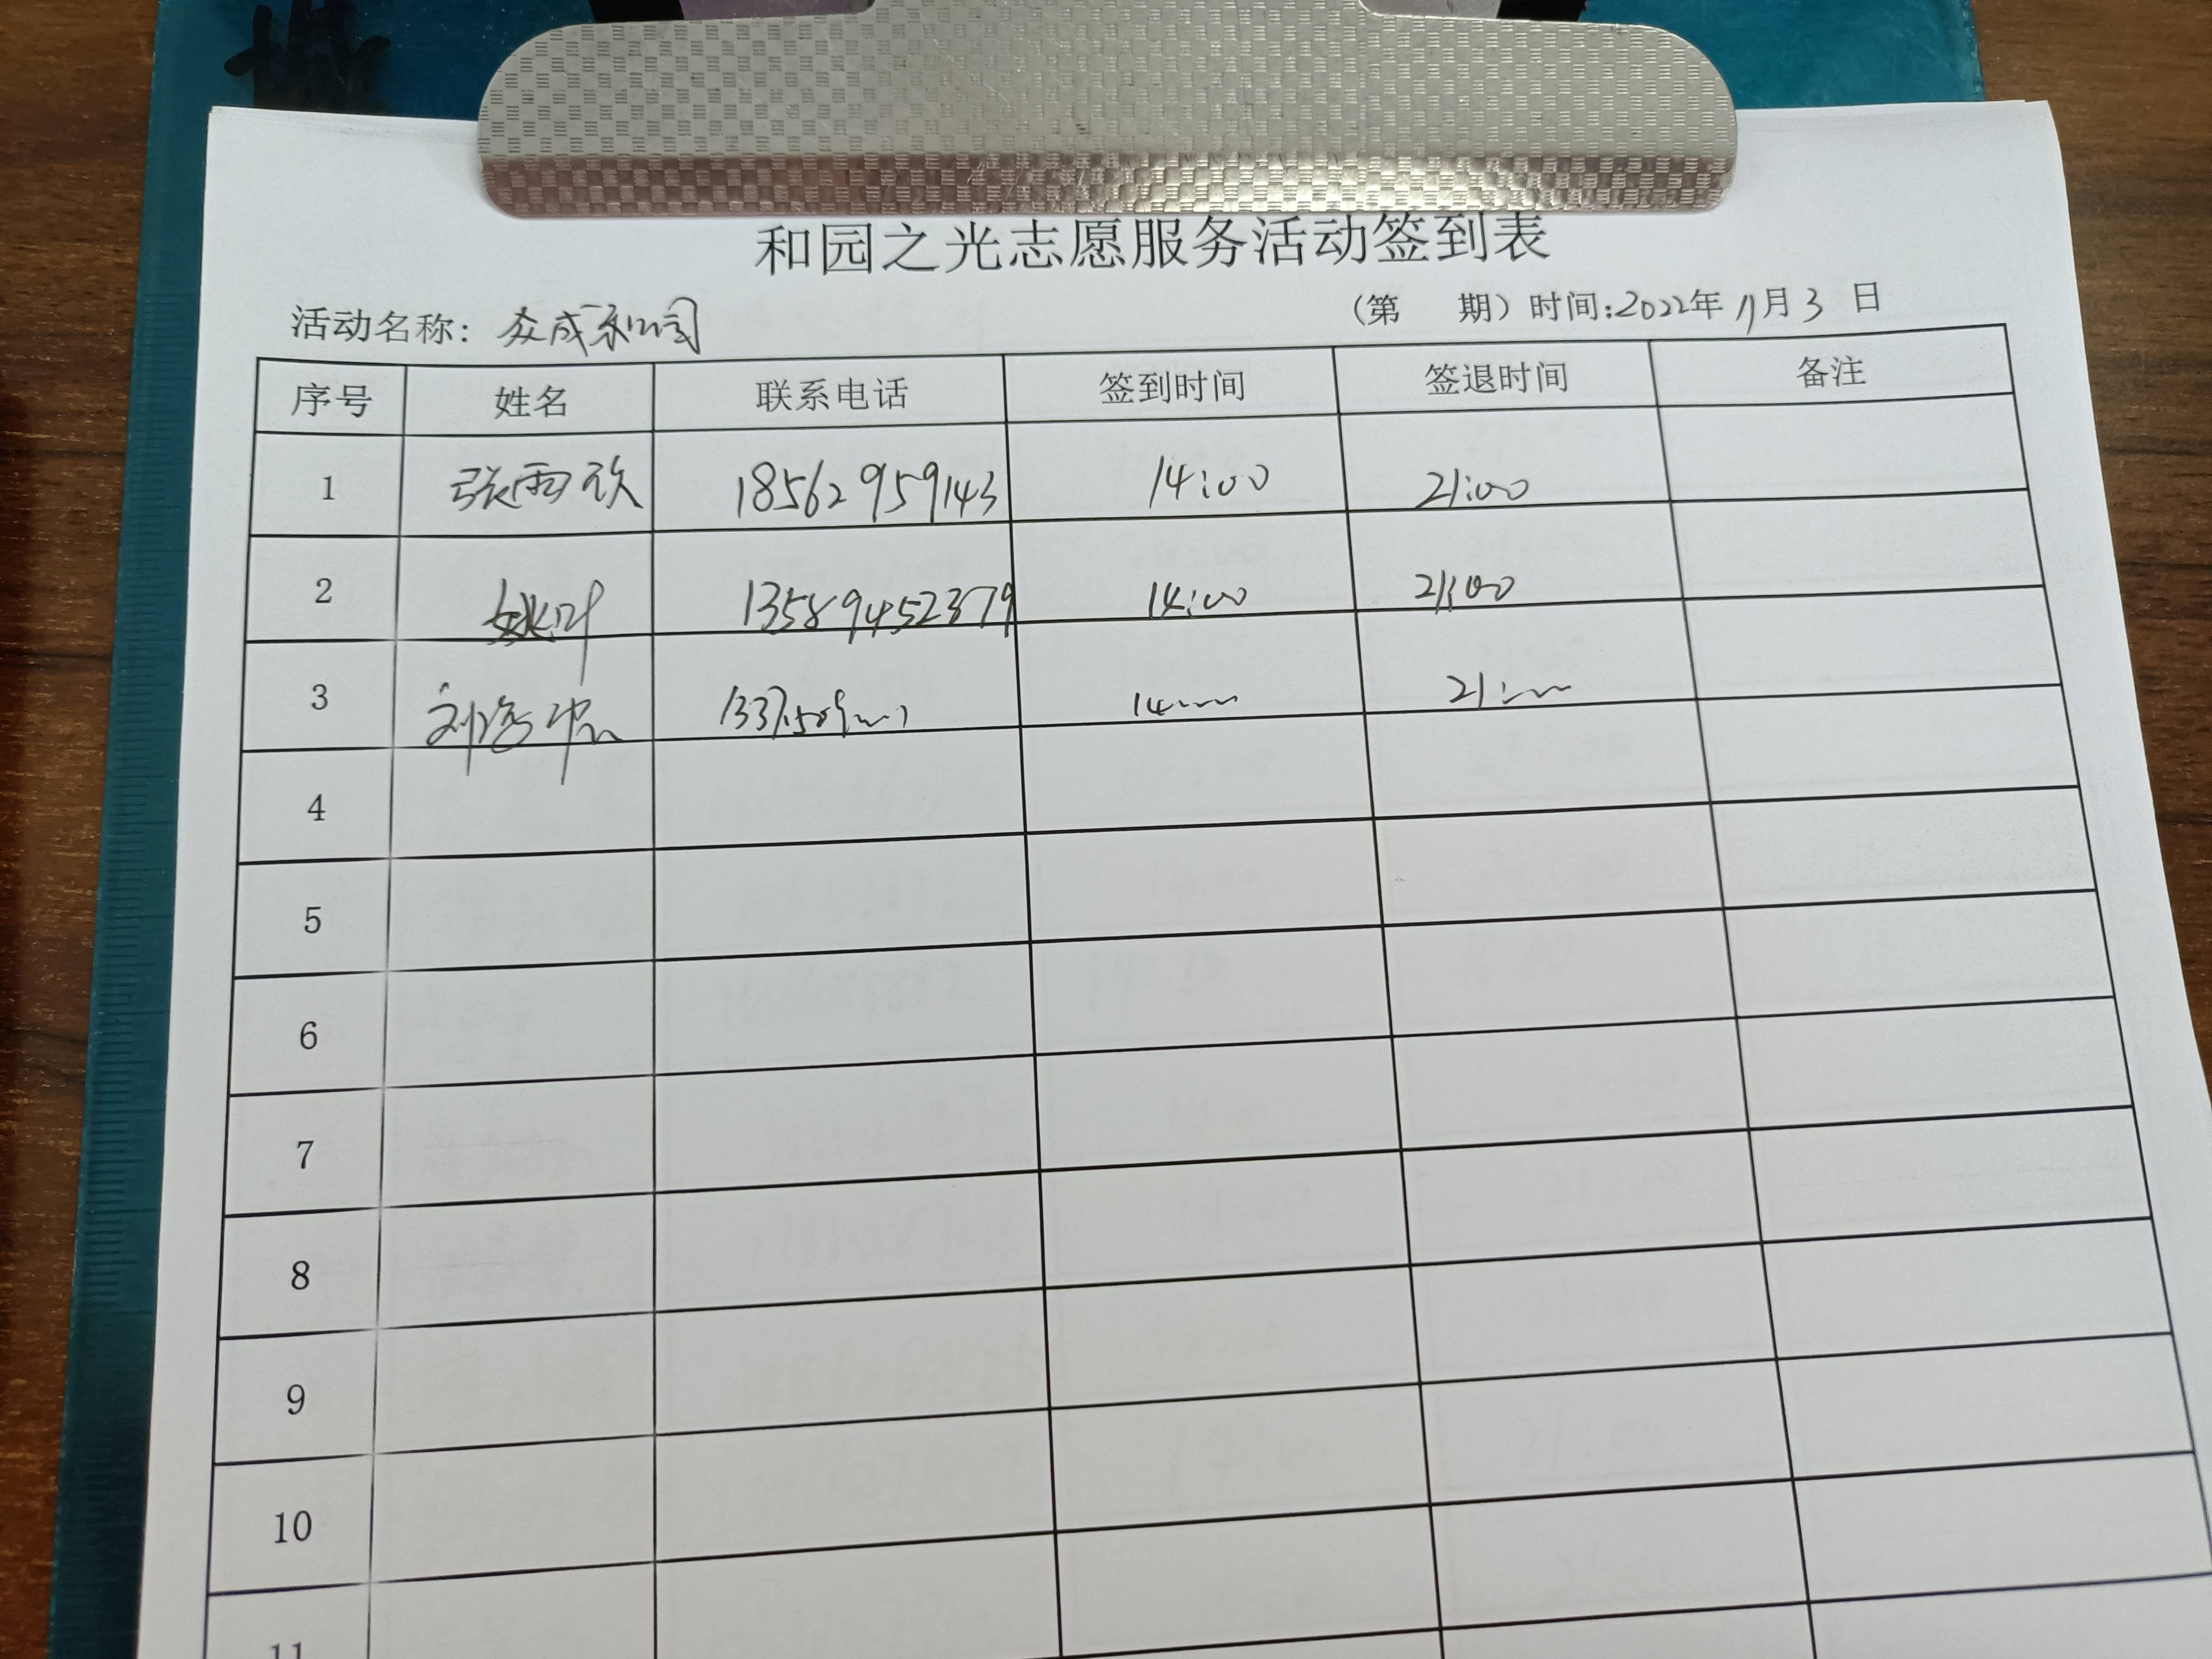 和园之光志愿服务活动签到表
活动名称: 众成和园 (第 期) 时间:2022年11月3日
序号 姓名 联系电话 签到时间 签退时间 备注
1 张雨欣 18562959143 14:00 21:00
2 姚叶 13589452379 14:00 21:00
3 14:00 21:00
4
5
6
7
8
9
10
11